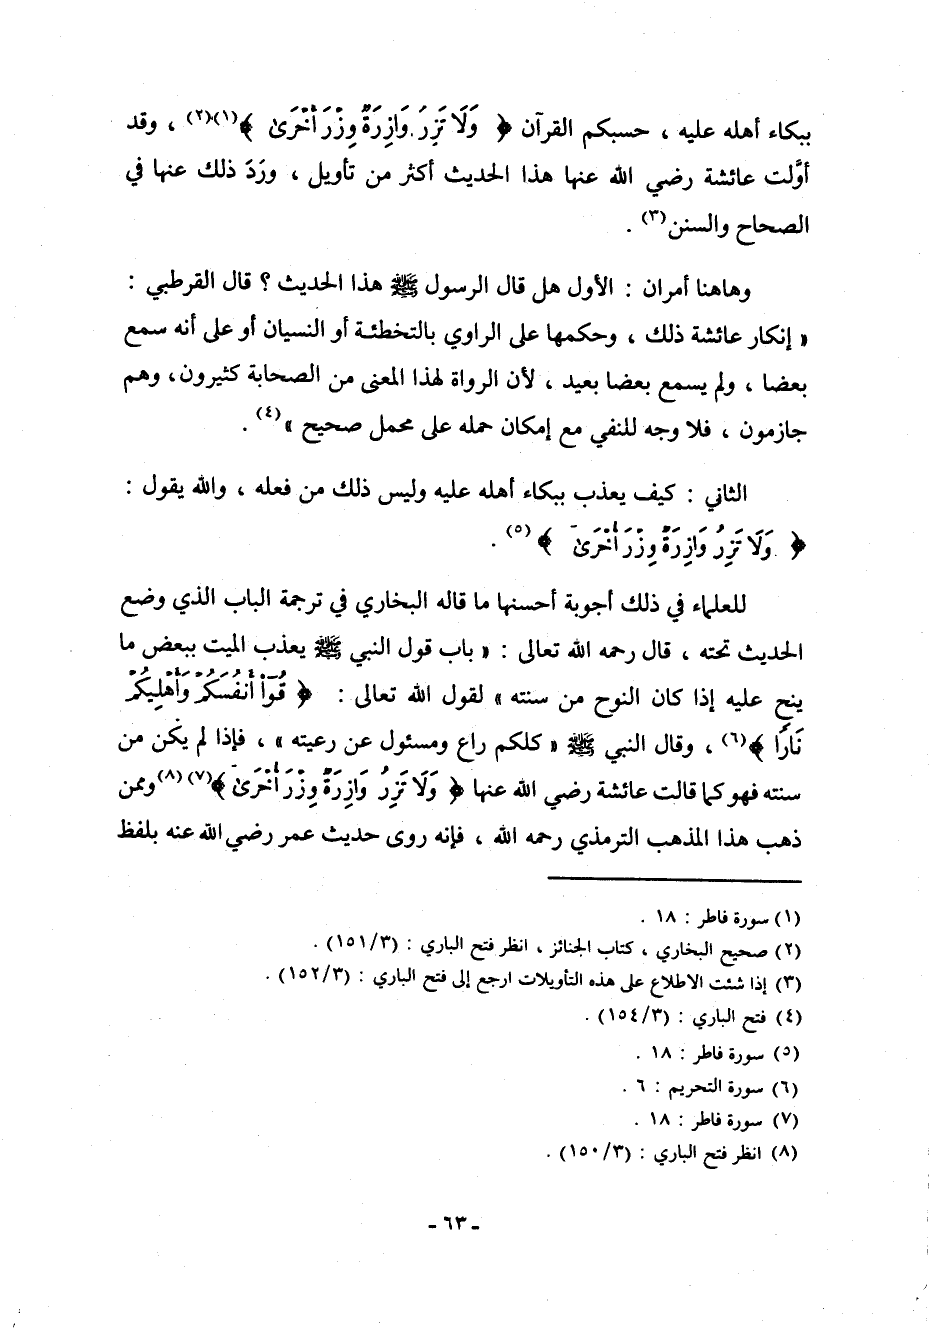 ببكاء أهله عليه ، حسبكم القرآن ﴿ وَلَا تَزِرُ وَازِرَةٌ وِزْرَ أُخْرَىٰ ﴾(١)(٢) ، وقد
أوَّلت عائشة رضي الله عنها هذا الحديث أكثر من تأويل ، ورَدَ ذلك عنها في
الصحاح والسنن(٣) .
وهاهنا أمران : الأول هل قال الرسول ﷺ هذا الحديث ؟ قال القرطبي :
« إنكار عائشة ذلك ، وحكمها على الراوي بالتخطئة أو النسيان أو على أنه سمع
بعضا ، ولم يسمع بعضا بعيد ، لأن الرواة لهذا المعنى من الصحابة كثيرون، وهم
جازمون ، فلا وجه للنفي مع إمكان حمله على محمل صحيح »(٤) .
الثاني : كيف يعذب ببكاء أهله عليه وليس ذلك من فعله ، والله يقول :
﴿ وَلَا تَزِرُ وَازِرَةٌ وِزْرَ أُخْرَىٰ ﴾(٥) .
للعلماء في ذلك أجوبة أحسنها ما قاله البخاري في ترجمة الباب الذي وضع
الحديث تحته ، قال رحمه الله تعالى : « باب قول النبي ﷺ يعذب الميت ببعض ما
ينح عليه إذا كان النوح من سنته » لقول الله تعالى : ﴿ قُوٓا۟ أَنفُسَكُمْ وَأَهْلِيكُمْ
نَارًا ﴾(٦) ، وقال النبي ﷺ « كلكم راع ومسئول عن رعيته » ، فإذا لم يكن من
سنته فهو كما قالت عائشة رضي الله عنها ﴿ وَلَا تَزِرُ وَازِرَةٌ وِزْرَ أُخْرَىٰ ﴾(٧)(٨) وممن
ذهب هذا المذهب الترمذي رحمه الله ، فإنه روى حديث عمر رضي الله عنه بلفظ
(١) سورة فاطر : ١٨ .
(٢) صحيح البخاري ، كتاب الجنائز ، انظر فتح الباري : (١٥١/٣) .
(٣) إذا شئت الاطلاع على هذه التأويلات ارجع إلى فتح الباري : (١٥٢/٣) .
(٤) فتح الباري : (١٥٤/٣) .
(٥) سورة فاطر : ١٨ .
(٦) سورة التحريم : ٦ .
(٧) سورة فاطر : ١٨ .
(٨) انظر فتح الباري : (١٥٠/٣) .
- ٦٣ -